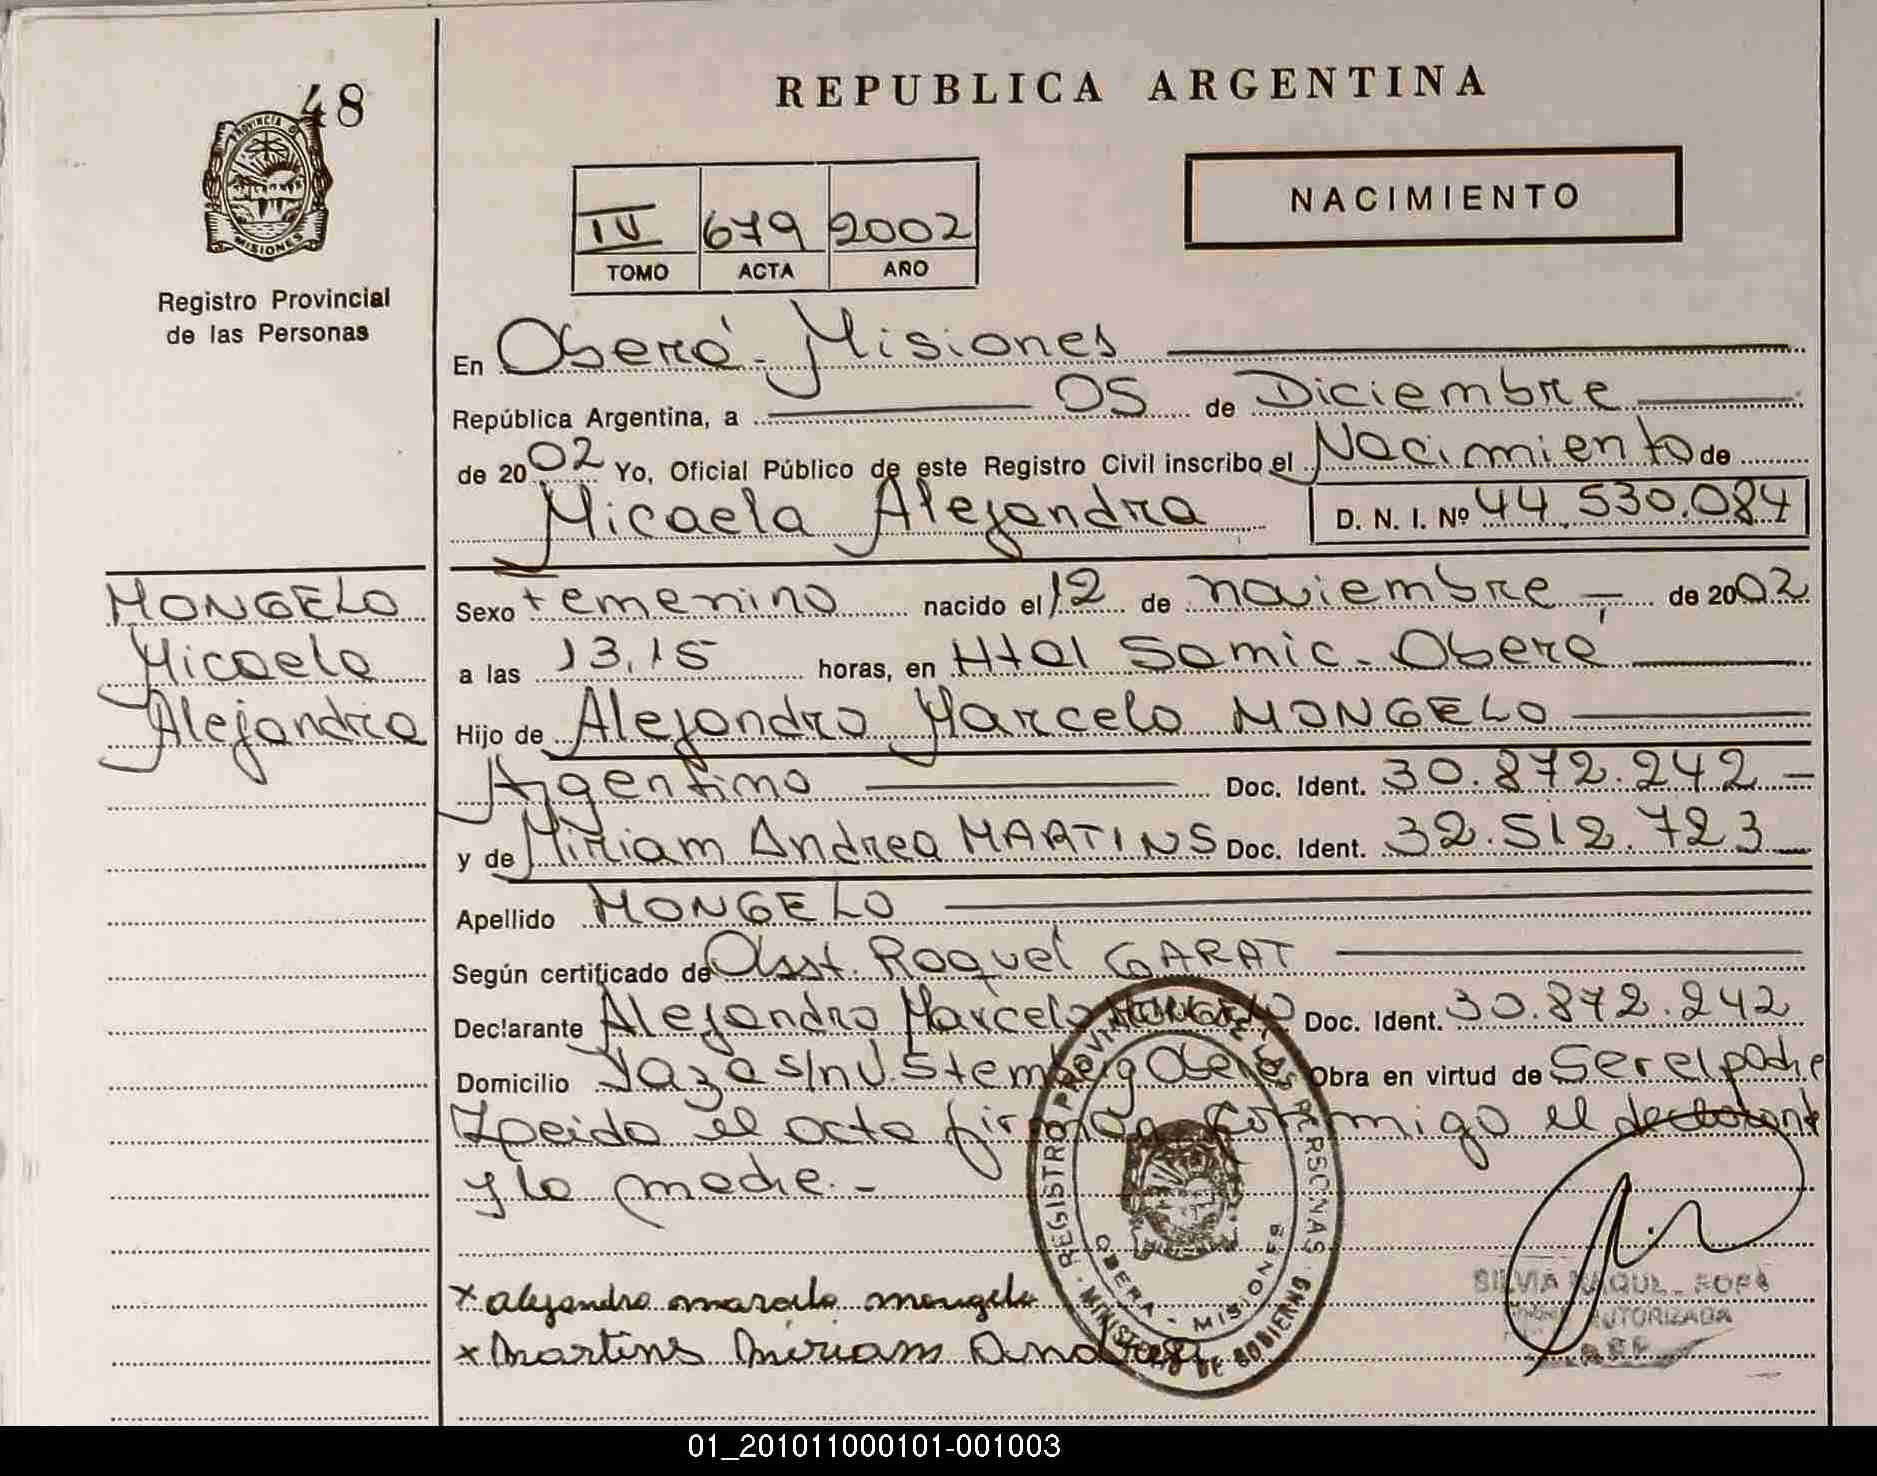 48
PROVINCIA DE
MISIONES
Registro Provincial
de las Personas
REPUBLICA ARGENTINA
IV 679 2002
TOMO ACTA AÑO
NACIMIENTO
En Oberá - Misiones
República Argentina, a 05 de Diciembre
de 2002 Yo, Oficial Público de este Registro Civil inscribo el Nacimiento de
Micaela Alejandra D. N. I. Nº 44.530.084
MONGELO
Micaela
Alejandra
Sexo Femenino nacido el 12 de noviembre - de 2002
a las 13,15 horas, en Htal Samic - Oberá
Hijo de Alejandro Marcelo MONGELO
Argentino Doc. Ident. 30.872.242 -
y de Miriam Andrea MARTINS Doc. Ident. 32.512.723
Apellido MONGELO
Según certificado de Obst. Raquel GARAT
Declarante Alejandro Marcelo MONGELO Doc. Ident. 30.872.242
Domicilio s/n Oberá Obra en virtud de Ser el padre
Leida el acta firman conmigo el declarante
y la madre. -
x alejandro marcelo mongelo
x Martins Miriam Andrea
REGISTRO PROVINCIAL DE LAS PERSONAS
OBERA - MISIONES
MINISTERIO DE GOBIERNO
SILVIA RAQUEL
AUTORIZADA
01_201011000101-001003